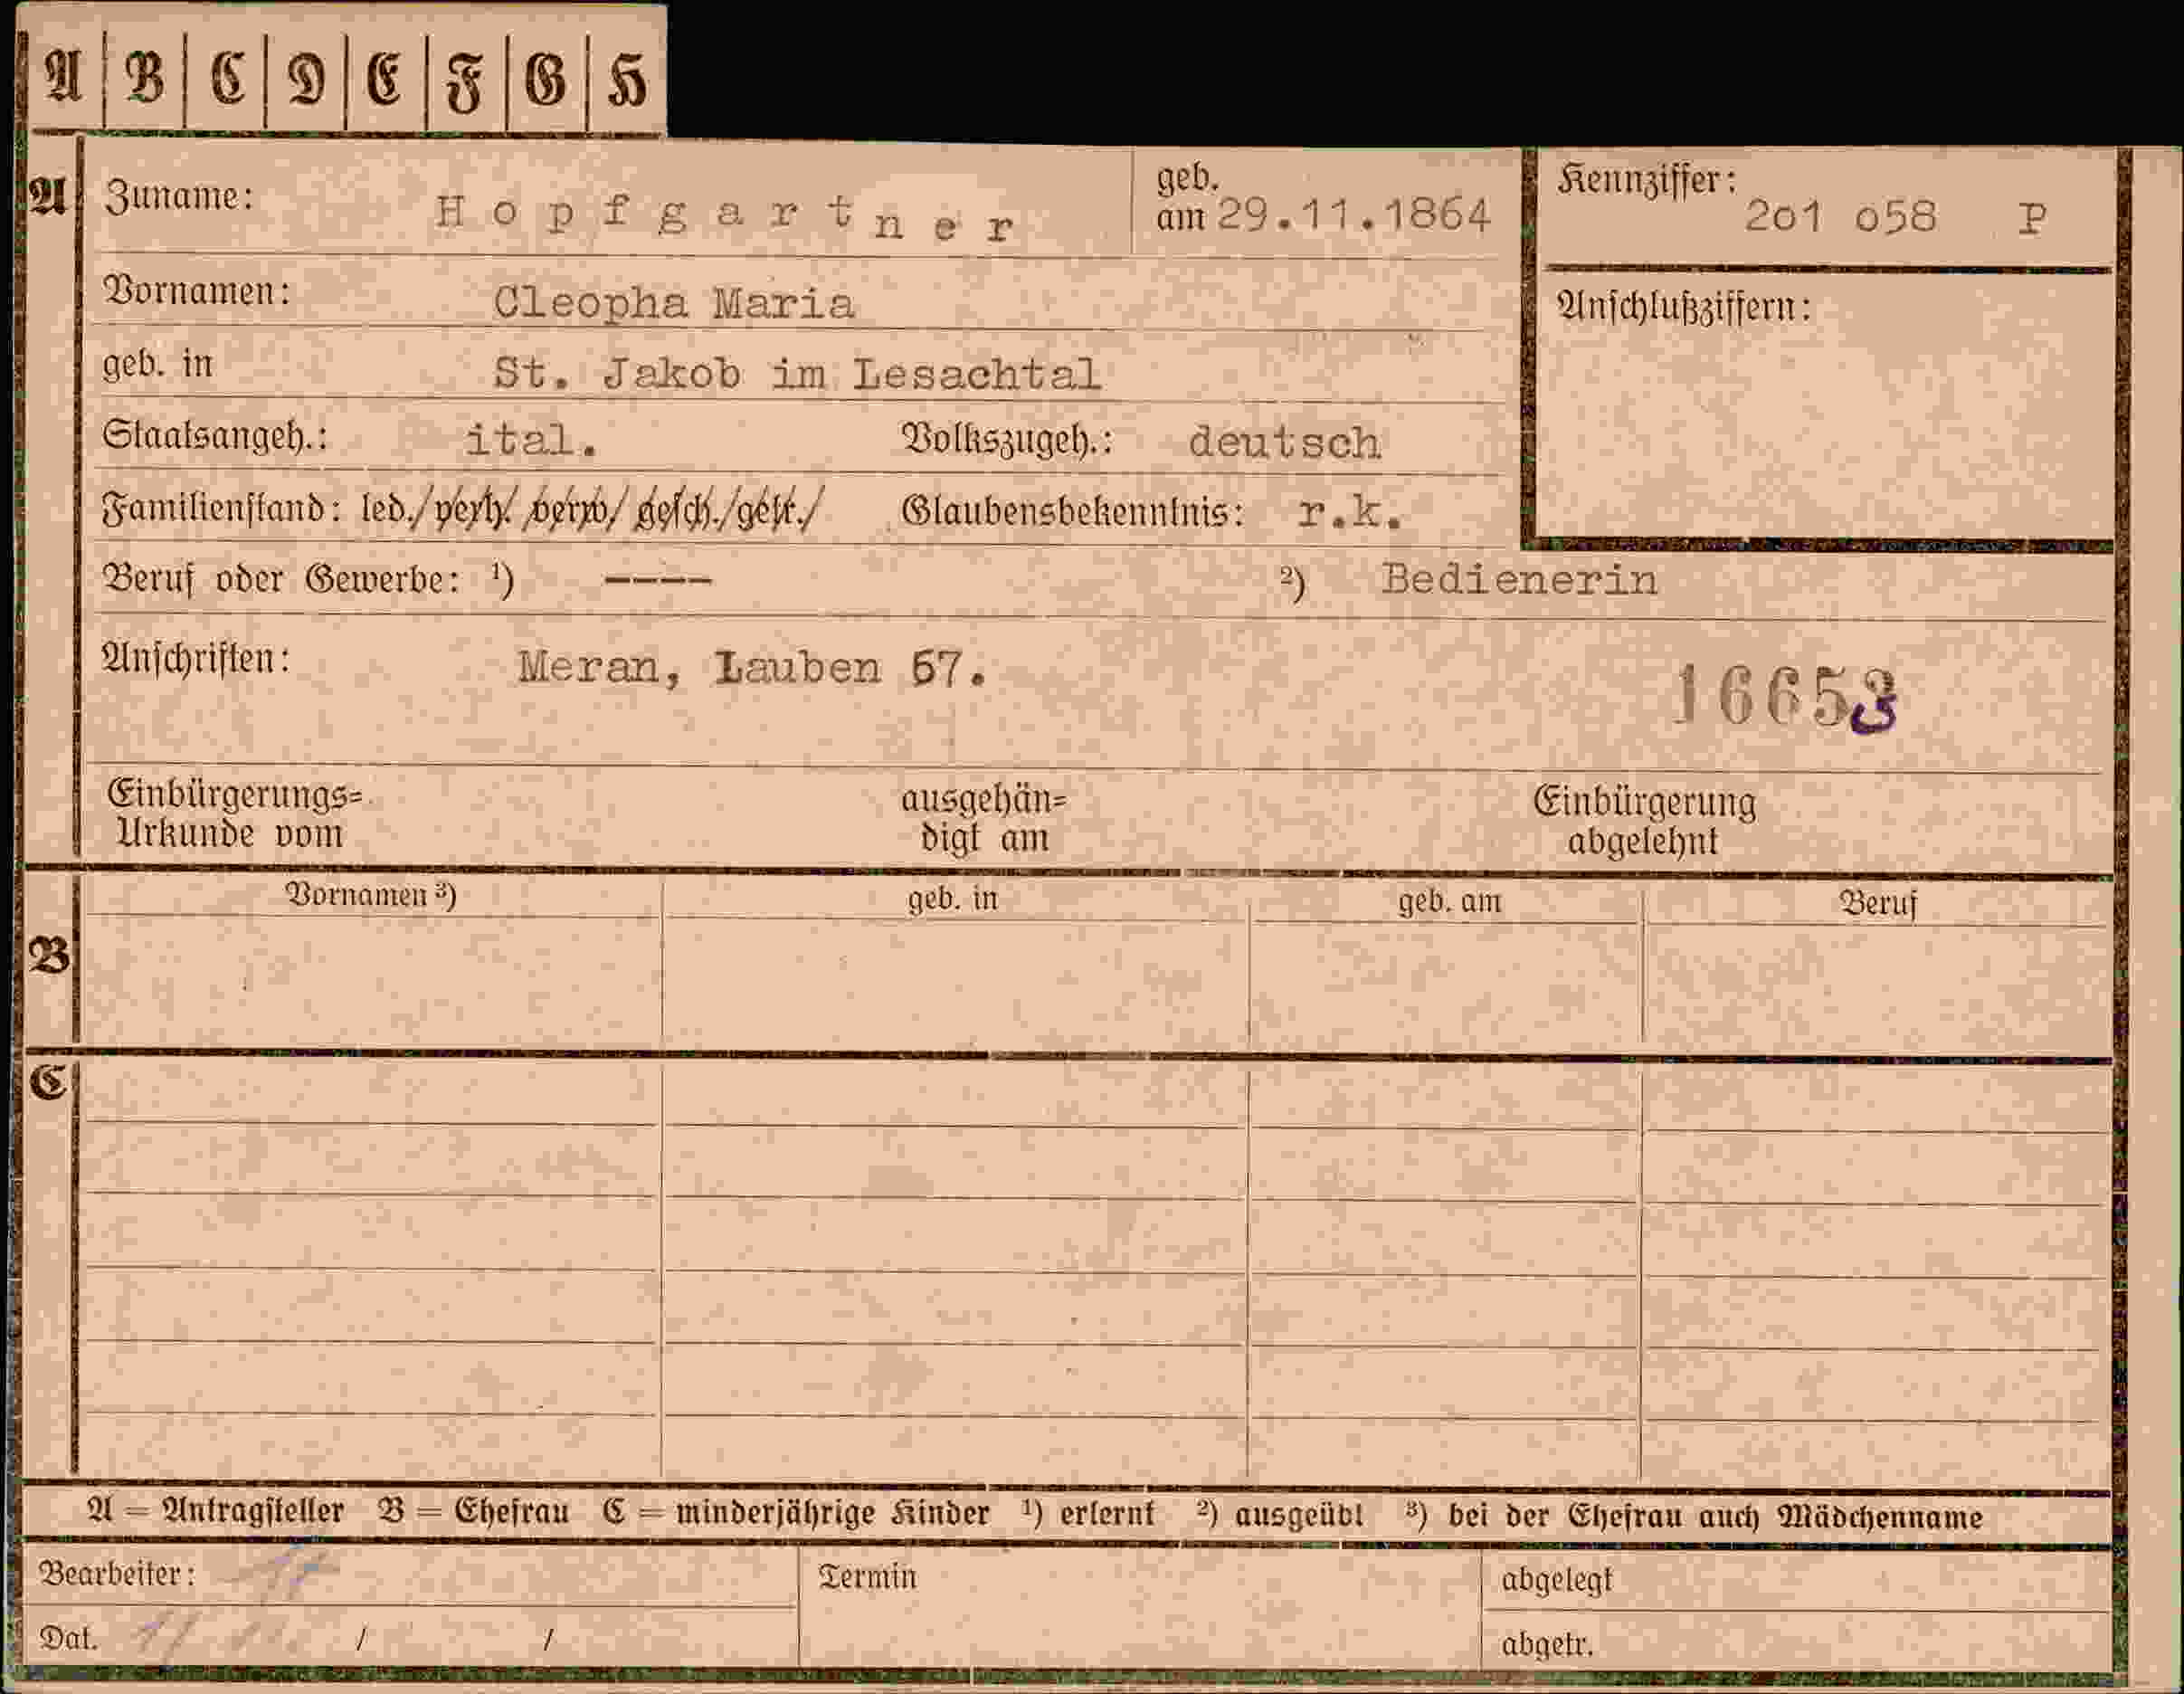 A B C D E F G H
A Zuname: Hopfgartner geb. am 29.11.1864 Kennziffer: 201 058 P
Vornamen: Cleopha Maria Anschlußziffern:
geb. in St. Jakob im Lesachtal
Staatsangeh.: ital. Volkszugeh.: deutsch
Familienstand: led./verh./verw/gesch./getr./ Glaubensbekenntnis: r.k.
Beruf oder Gewerbe: ¹) ---- ²) Bedienerin
Anschriften: Meran, Lauben 67.
16653
Einbürgerungs= ausgehän= Einbürgerung
Urkunde vom digt am abgelehnt
Vornamen ³) geb. in geb. am Beruf
B
C
A = Antragsteller B = Ehefrau C = minderjährige Kinder ¹) erlernt ²) ausgeübt ³) bei der Ehefrau auch Mädchenname
Bearbeiter: Termin abgelegt
Dat. / / abgetr.